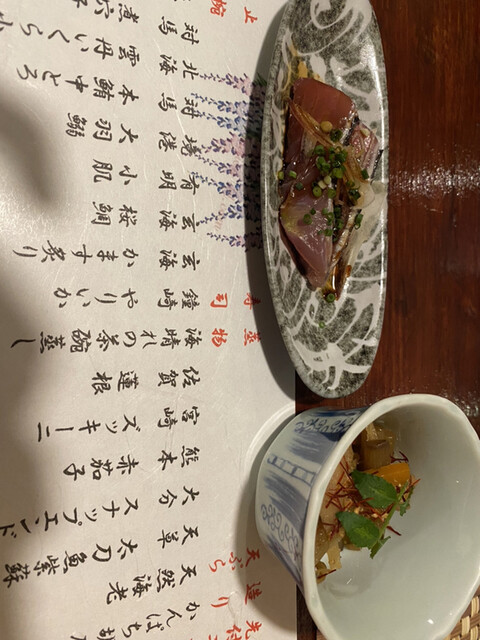 先付
造り かんぱち 胡
天ぷら 天然海老
天草 太刀魚紫蘇
大分 スナップエンド
熊本 赤茄子
宮崎 ズッキーニ
佐賀 蓮根
蒸物 海晴れの茶碗蒸し
寿司 鐘崎 やりいか
玄海 かます炙り
玄海 桜鯛
有明 小肌
境港 大羽鰯
対馬 本鮪中とろ
北海 雲丹いくら小
対馬 煮穴
止椀